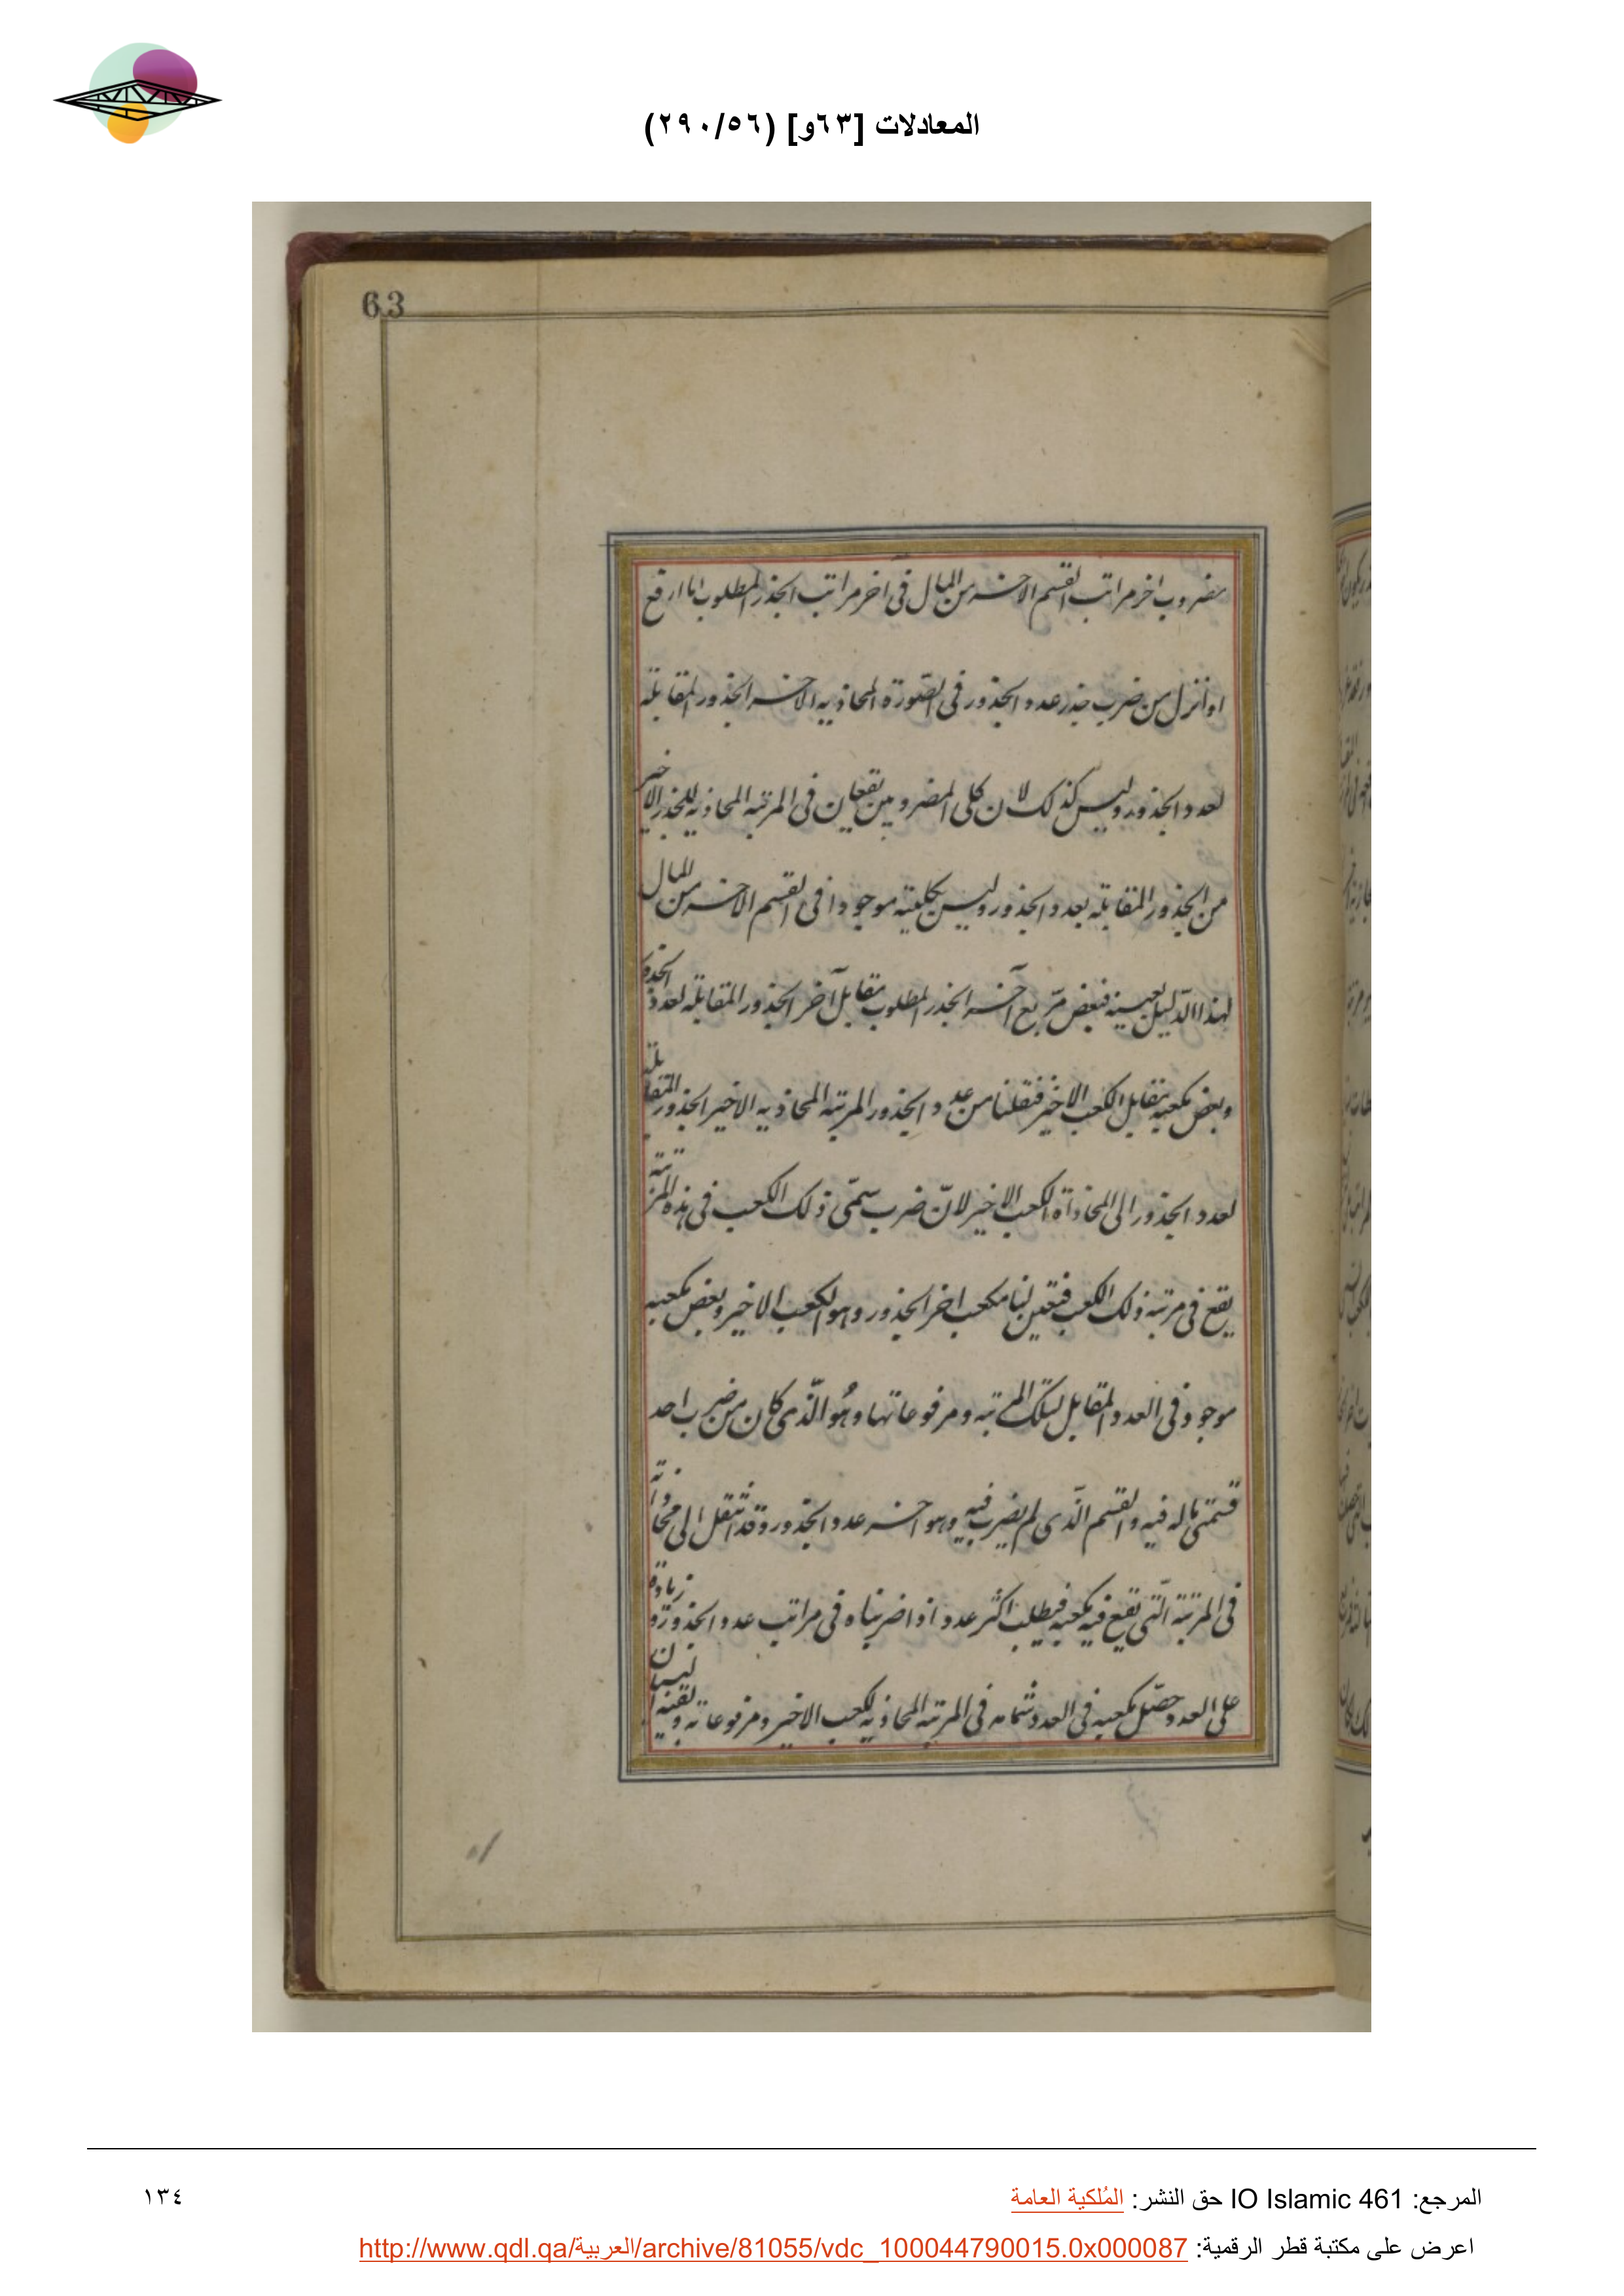 المعادلات [٦٣و] (٢٩٠/٥٦)
63
مضروب اخر مراتب القسم الاخير من المال فى اخر مراتب الجذر المطلوب اما ارفع
او انزل من ضرب جذر عدد الجذور فى الصورة المحاذيه الاخير الجذور المقابلة
لعدد الجذور وليس كذلك لان كلى المضروبين يقعان فى المرتبه المحاذيه للجذر الاخير
من الجذور المقابله بعدد الجذور وليس بكليته موجودا فى القسم الاخير من المال
لهذا الدّليل بعينه فبعض مربع آخر الجذر المطلوب مقابل آخر الجذور المقابله لعدد الجذور
وبعض مكعبه يقابل الكعب الاخير فنقلنا من عدد الجذور المرتبه المحاذيه الاخير الجذور المقابلة
لعدد الجذور الى المحاذاة الكعب الاخير لانّ ضرب سمّى ذلك الكعب فى هذه المرتبة
يقع فى مرتبة ذلك الكعب فتعين لنا مكعب اخر الجذور وهو الكعب الاخير وبعض مكعبه
موجود فى العدد المقابل لتلك المرتبه ومرفوعاتها وهُو الّذى كان من ضرب احد
قسمتى ماله فيه والقسم الّذى لم يضرب فيه وهو اخر عدد الجذور وقد انتقل الى محاذاته
فى المرتبة الّتى تقع فيه مكعبه فيطلب اكثر عدد اذا ضربناه فى مراتب عدد الجذور وزيادة
على العدد حصّل مكعبه فى العدد تمامه فى المرتبة المحاذيه لكعب الاخير ومرفوعاته
المرجع: IO Islamic 461 حق النشر: المُلكية العامة
١٣٤
اعرض على مكتبة قطر الرقمية: http://www.qdl.qa/العربية/archive/81055/vdc_100044790015.0x000087